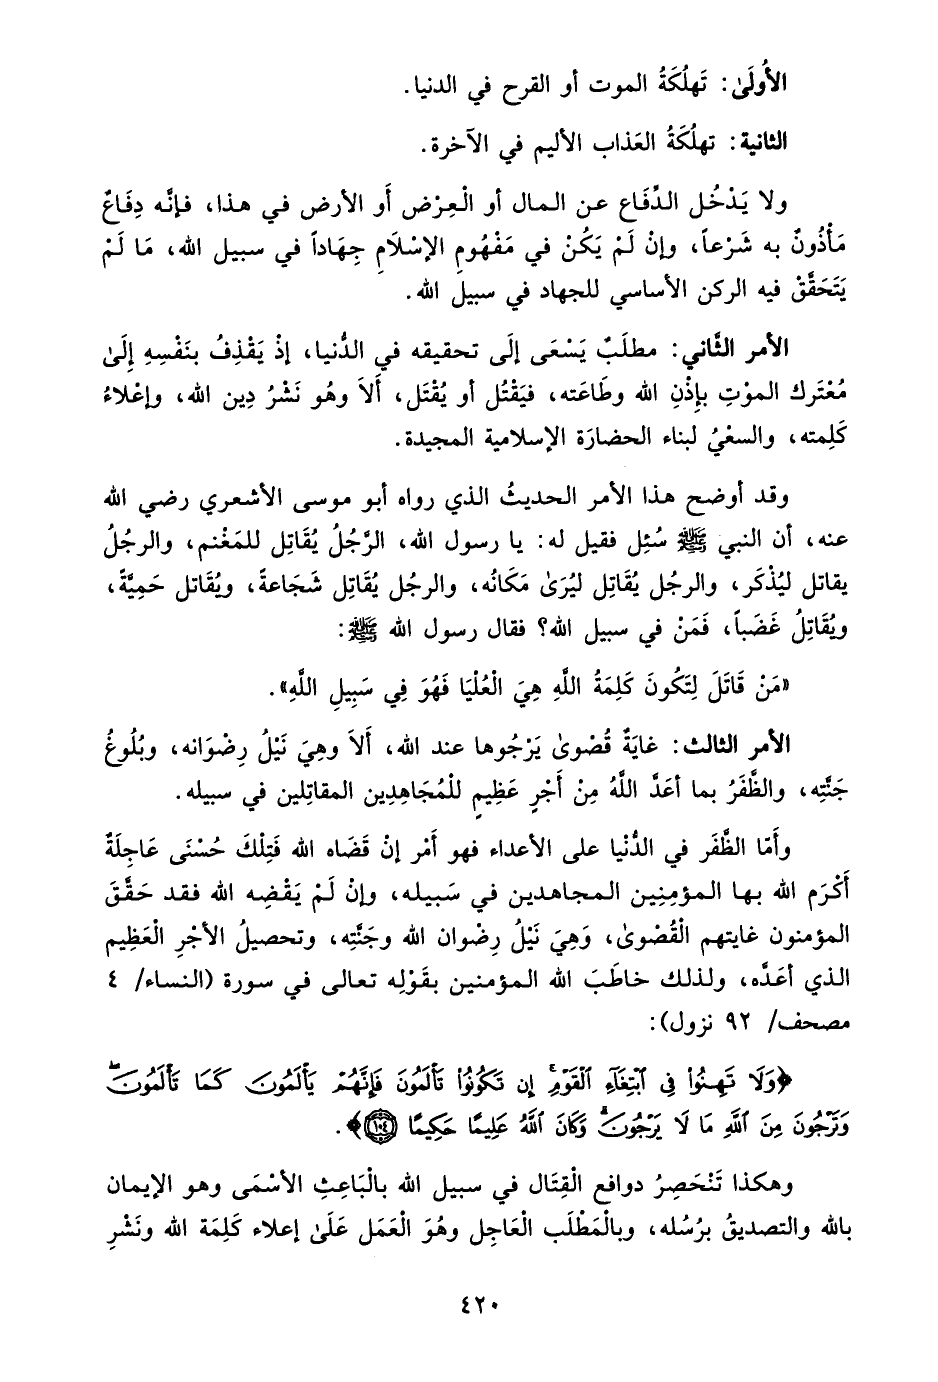 الأُولَىٰ: تَهلُكَةُ الموت أو القرح في الدنيا.
الثانية: تهلُكَةُ العَذاب الأليم في الآخرة.
ولا يَدْخُل الدِّفَاع عن المال أو الْعِرْض أَو الأرض في هذا، فإنَّه دِفَاعٌ
مَأْذُونٌ به شَرْعاً، وإنْ لَمْ يَكُنْ في مَفْهُومِ الإسْلَامِ جِهَاداً في سبيل الله، مَا لَمْ
يَتَحَقَّقْ فيه الركن الأساسي للجهاد في سبيل الله.
الأمر الثَّاني: مطلَبٌ يَسْعَى إلَى تحقيقه في الدُّنيا، إذْ يَقْذِفُ بنَفْسِهِ إِلَىٰ
مُعْتَرك الموْتِ بإذْنِ الله وطَاعَته، فيَقْتُل أو يُقْتَل، أَلاَ وهُو نَشْرُ دِين الله، وإعْلاءُ
كَلِمته، والسعْيُ لبناء الحضارَة الإسلامية المجيدة.
وقد أوضح هذا الأمر الحديثُ الذي رواه أبو موسى الأشعري رضي الله
عنه، أن النبي ﷺ سُئِل فقيل له: يا رسول الله، الرَّجُلُ يُقَاتِل للمَغْنم، والرجُلُ
يقاتل ليُذْكَر، والرجُل يُقَاتِل ليُرَىٰ مَكَانُه، والرجُل يُقَاتِل شَجَاعةً، ويُقَاتل حَمِيَّةً،
ويُقَاتِلُ غَضَباً، فَمَنْ في سبيل الله؟ فقال رسول الله ﷺ:
«مَنْ قَاتَلَ لِتَكُونَ كَلِمَةُ اللَّهِ هِيَ الْعُلْيَا فَهُوَ فِي سَبِيلِ اللَّهِ».
الأمر الثالث: غايَةٌ قُصْوىٰ يَرْجُوها عند الله، أَلاَ وهِيَ نَيْلُ رِضْوَانه، وبُلُوغُ
جَنَّتِه، والظَّفَرُ بما أعَدَّ اللَّهُ مِنْ أَجْرٍ عَظِيمٍ للْمُجَاهِدِين المقاتِلين في سبيله.
وأَمّا الظَّفَر في الدُّنْيا على الأعداء فهو أَمْر إنْ قَضَاه الله فَتِلْكَ حُسْنَى عَاجِلَةٌ
أَكْرَم الله بها المؤمِنِين المجاهدين في سَبيله، وإنْ لَمْ يَقْضِه الله فقد حَقَّقَ
المؤمنون غايتهم الْقُصْوىٰ، وَهِيَ نَيْلُ رِضْوان الله وجَنَّتِه، وتحصيلُ الأجْرِ الْعَظِيم
الذي أعَدَّه، ولذلك خاطَبَ الله المؤمنين بقَوْلِه تعالى في سورة (النساء/ ٤
مصحف/ ٩٢ نزول):
﴿وَلَا تَهِنُوا۟ فِى ٱبْتِغَآءِ ٱلْقَوْمِ ۖ إِن تَكُونُوا۟ تَأْلَمُونَ فَإِنَّهُمْ يَأْلَمُونَ كَمَا تَأْلَمُونَ ۖ
وَتَرْجُونَ مِنَ ٱللَّهِ مَا لَا يَرْجُونَ ۗ وَكَانَ ٱللَّهُ عَلِيمًا حَكِيمًا ١٠٤﴾.
وهكذا تَنْحَصِرُ دوافع الْقِتَال في سبيل الله بالْبَاعِثِ الأسْمَى وهو الإيمان
بالله والتصديقُ برُسُله، وبالْمَطْلَب الْعَاجِلِ وهُوَ الْعَمَل عَلَىٰ إعلاء كَلِمَة الله ونَشْرِ
٤٢٠